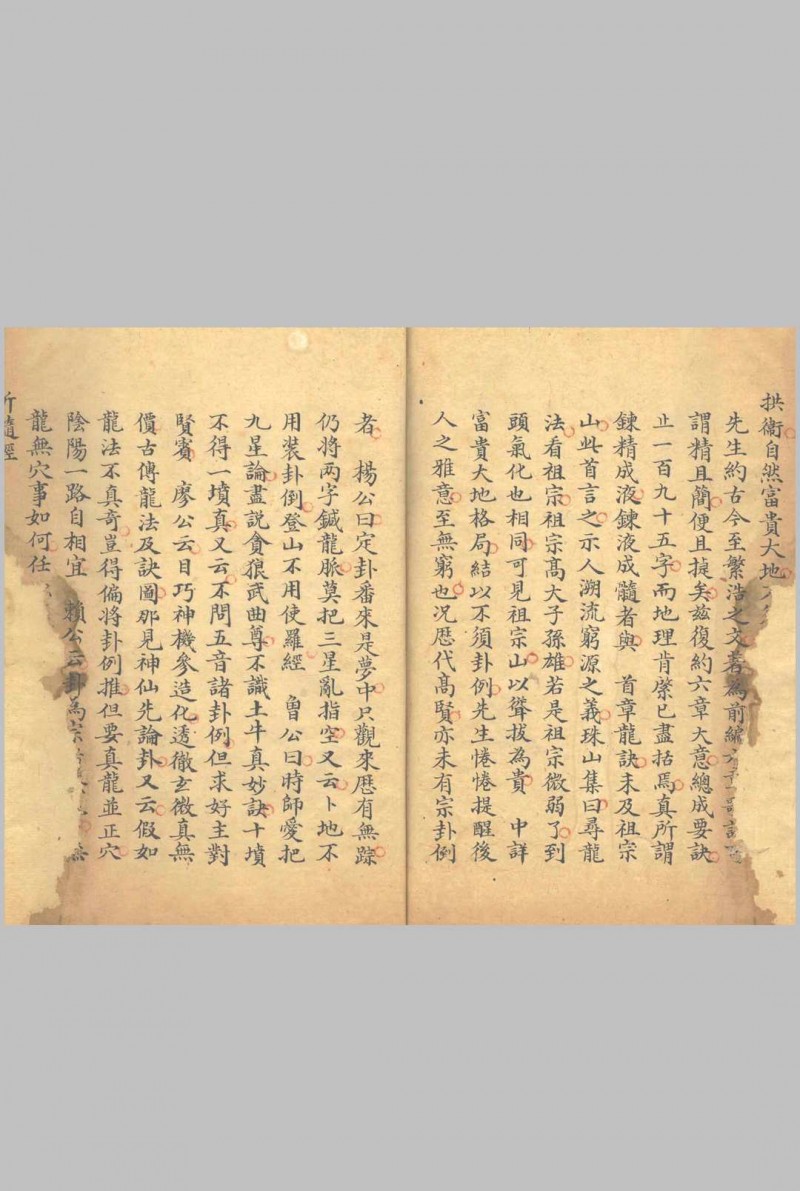 拱衛自然富貴大地
先生約古今至繁浩之文著為前編
謂精且簡便且捷矣茲復約六章大意總成要訣
止一百九十五字而地理肯綮已盡括焉真所謂
鍊精成液鍊液成髓者與 首章龍訣未及祖宗
山此首言之示人溯流窮源之義珠山集曰尋龍
法看祖宗祖宗髙大子孫雄若是祖宗微弱了到
頭氣化也相同可見祖宗山以聳拔為貴 中詳
富貴大地格局結以不須卦例先生惓惓提醒後
人之雅意至無窮也况歴代髙賢亦未有宗卦例
者 楊公曰定卦番來是夢中只觀來歴有無踪
仍將两字鍼龍脈莫把三星亂指空又云卜地不
用装卦例登山不用使羅經 曾公曰時師愛把
九星論盡説貪狼武曲尊不識土牛真妙訣十墳
不得一墳真又云不問五音諸卦例但求好主對
賢賓 廖公云目巧神機參造化透徹玄微真無
價古傳龍法及訣圖那見神仙先論卦又云假如
龍法不真奇豈得偏將卦例推但要真龍並正穴
陰陽一路自相宜 賴公云卦為宗
龍無穴事如何任
髓經